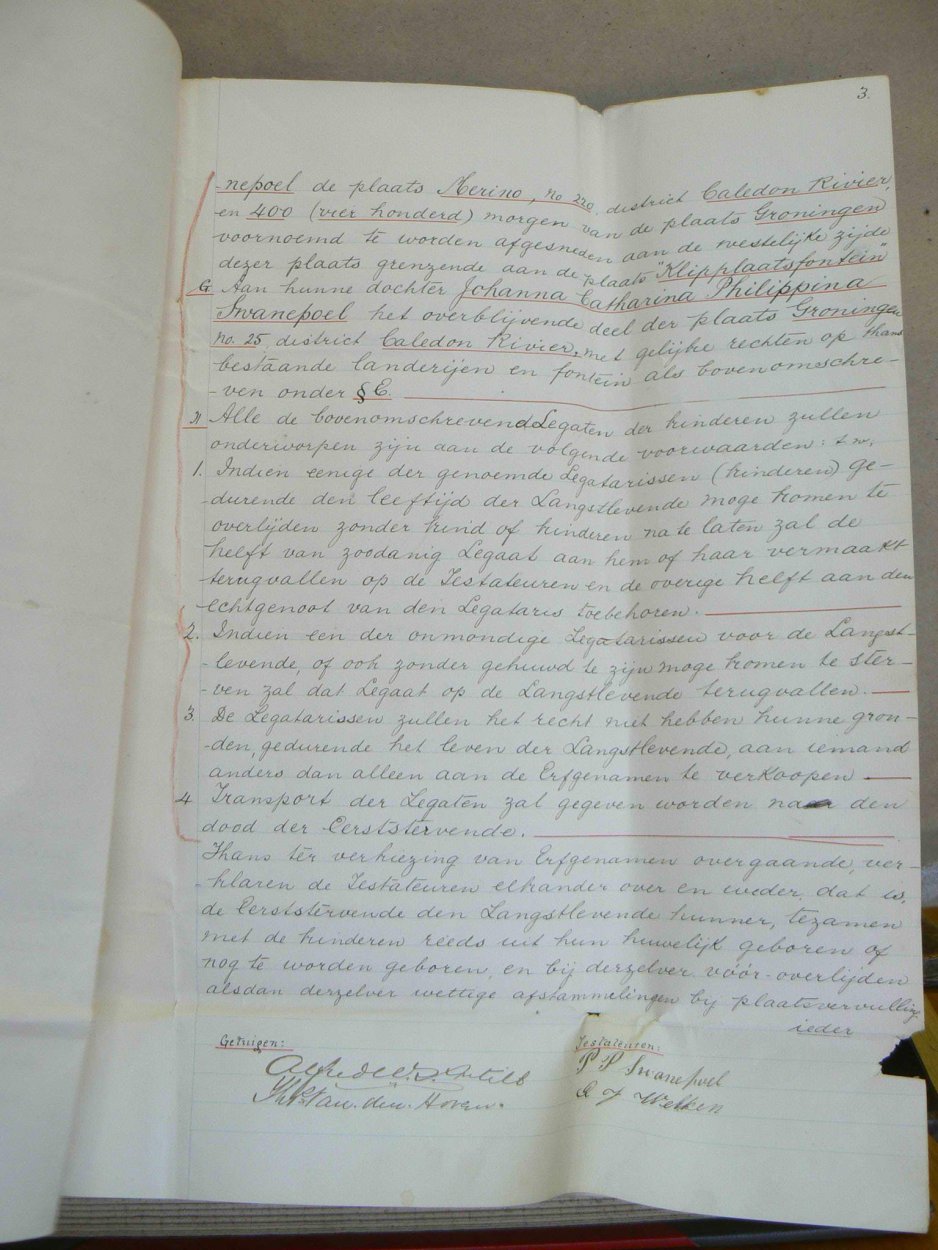 3.
-nepoel de plaats Merino, No 220, district Caledon Rivier,
en 400 (vier honderd) morgen van de plaats Groningen
voornoemd te worden afgesneden aan de westelijke zijde
dezer plaats grenzende aan de plaats "Klipplaatsfontein"
G. Aan hunne dochter Johanna Catharina Philippina
Swanepoel het overblijvende deel der plaats Groningen
No. 25, district Caledon Rivier, met gelijke rechten op thans
bestaande landerijen en fontein als bovenomschre-
-ven onder § E.
H Alle de bovenomschrevend Legaten der kinderen zullen
onderworpen zijn aan de volgende voorwaarden: t.w.
1. Indien eenige der genoemde Legatarissen (kinderen) ge-
-durende den leeftijd der Langstlevende moge komen te
overlijden zonder kind of kinderen na te laten zal de
helft van zoodanig Legaat aan hem of haar vermaakt
terugvallen op de Testateuren en de overige helft aan den
echtgenoot van den Legataris toebehooren.
2. Indien een der onmondige Legatarissen voor de Langst-
-levende, of ook zonder gehuwd te zijn moge komen te ster-
-ven zal dat Legaat op de Langstlevende terugvallen.
3. De Legatarissen zullen het recht niet hebben hunne gron-
-den, gedurende het leven der Langstlevende, aan iemand
anders dan alleen aan de Erfgenamen te verkoopen
4 Transport der Legaten zal gegeven worden naar den
dood der Eerststervende.
Thans ter verkiezing van Erfgenamen overgaande, ver-
-klaren de Testateuren elkander over en weder, dat is,
de Eerststervende den Langstlevende hunner, tezamen
met de kinderen reeds uit hun huwelijk geboren of
nog te worden geboren, en bij derzelver vóór-overlijden
alsdan derzelver wettige afstammelingen bij plaatsvervulling
ieder
Getuigen: Testateuren:
P P Swanepoel
van den Hoven. J Welken